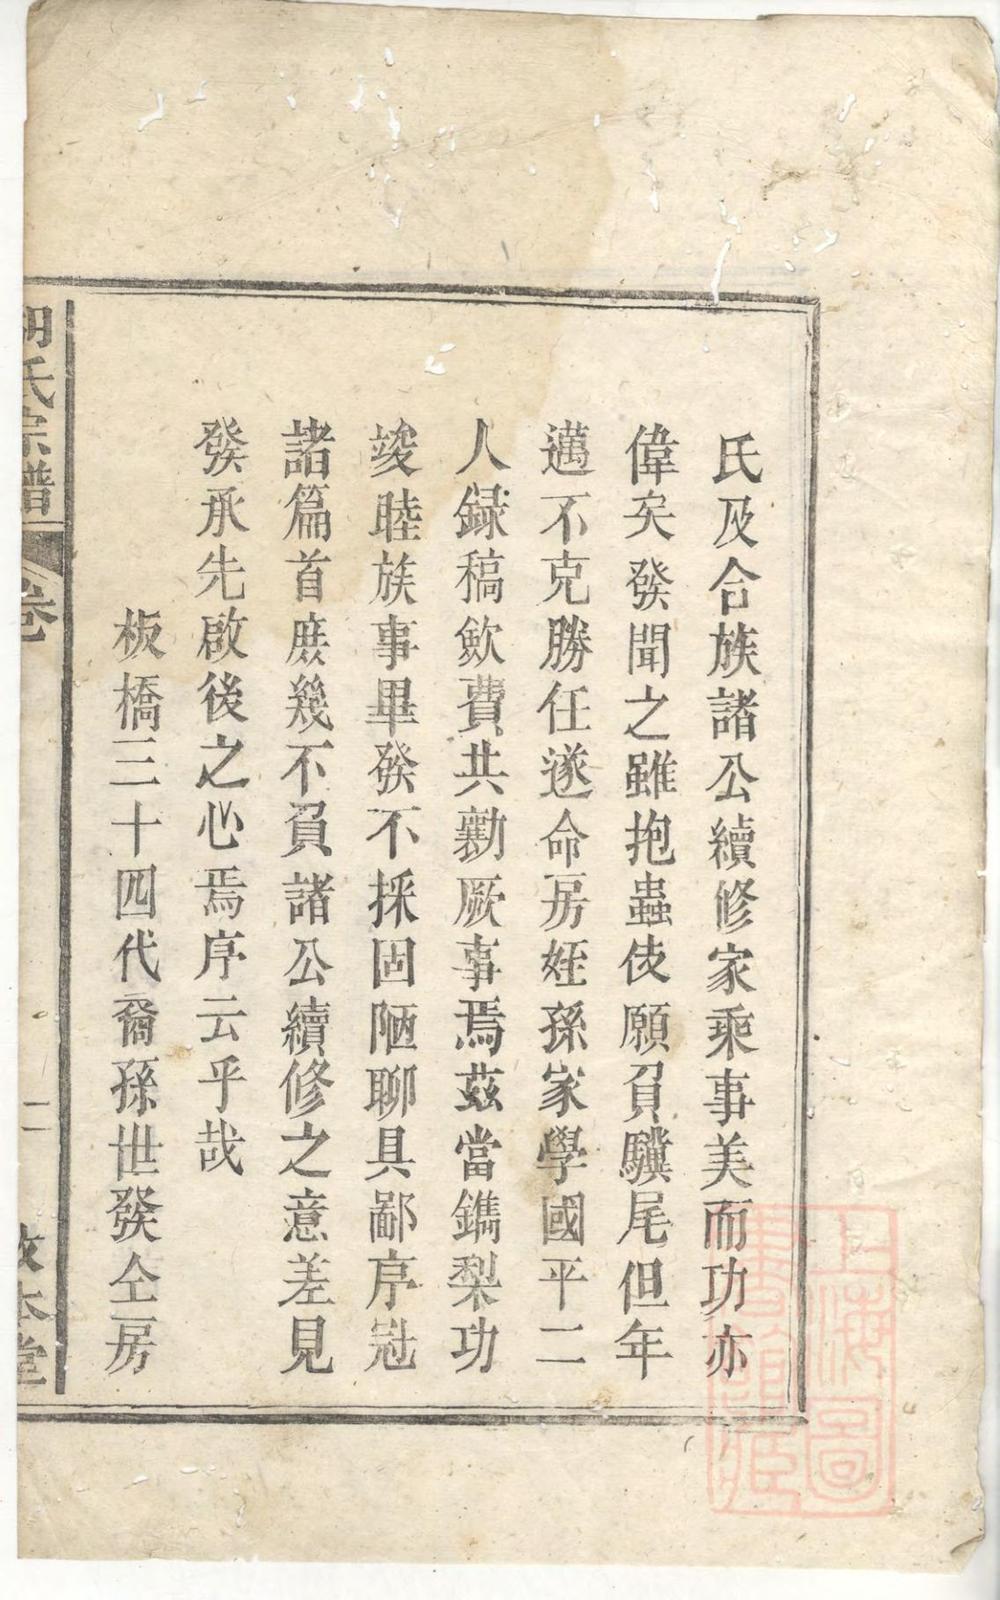 氏及合族諸公續修家乘事美而功亦
偉矣發聞之雖抱蟲伎願負驥尾但年
邁不克勝任遂命房姪孫家學國平二
人録稿歛費共勷厥事焉茲當鐫梨功
竣睦族事畢發不採固陋聊具鄙序冠
諸篇首庶幾不負諸公續修之意差見
發承先啟後之心焉序云乎哉
板橋三十四代裔孫世發仝房
胡氏宗譜
卷
二
敦本堂
上海圖
書館藏